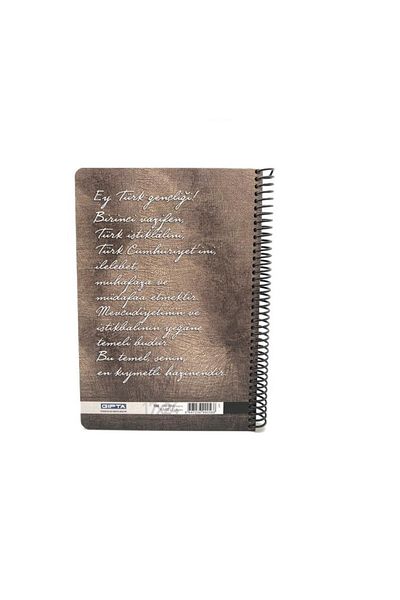 Ey Türk gençliği!
Birinci vazifen,
Türk istiklalini,
Türk Cumhuriyet'ini,
ilelebet,
muhafaza ve
müdafaa etmektir.
Mevcudiyetinin ve
istikbalinin yegane
temeli budur.
Bu temel, senin,
en kıymetli hazinendir.
GIPTA